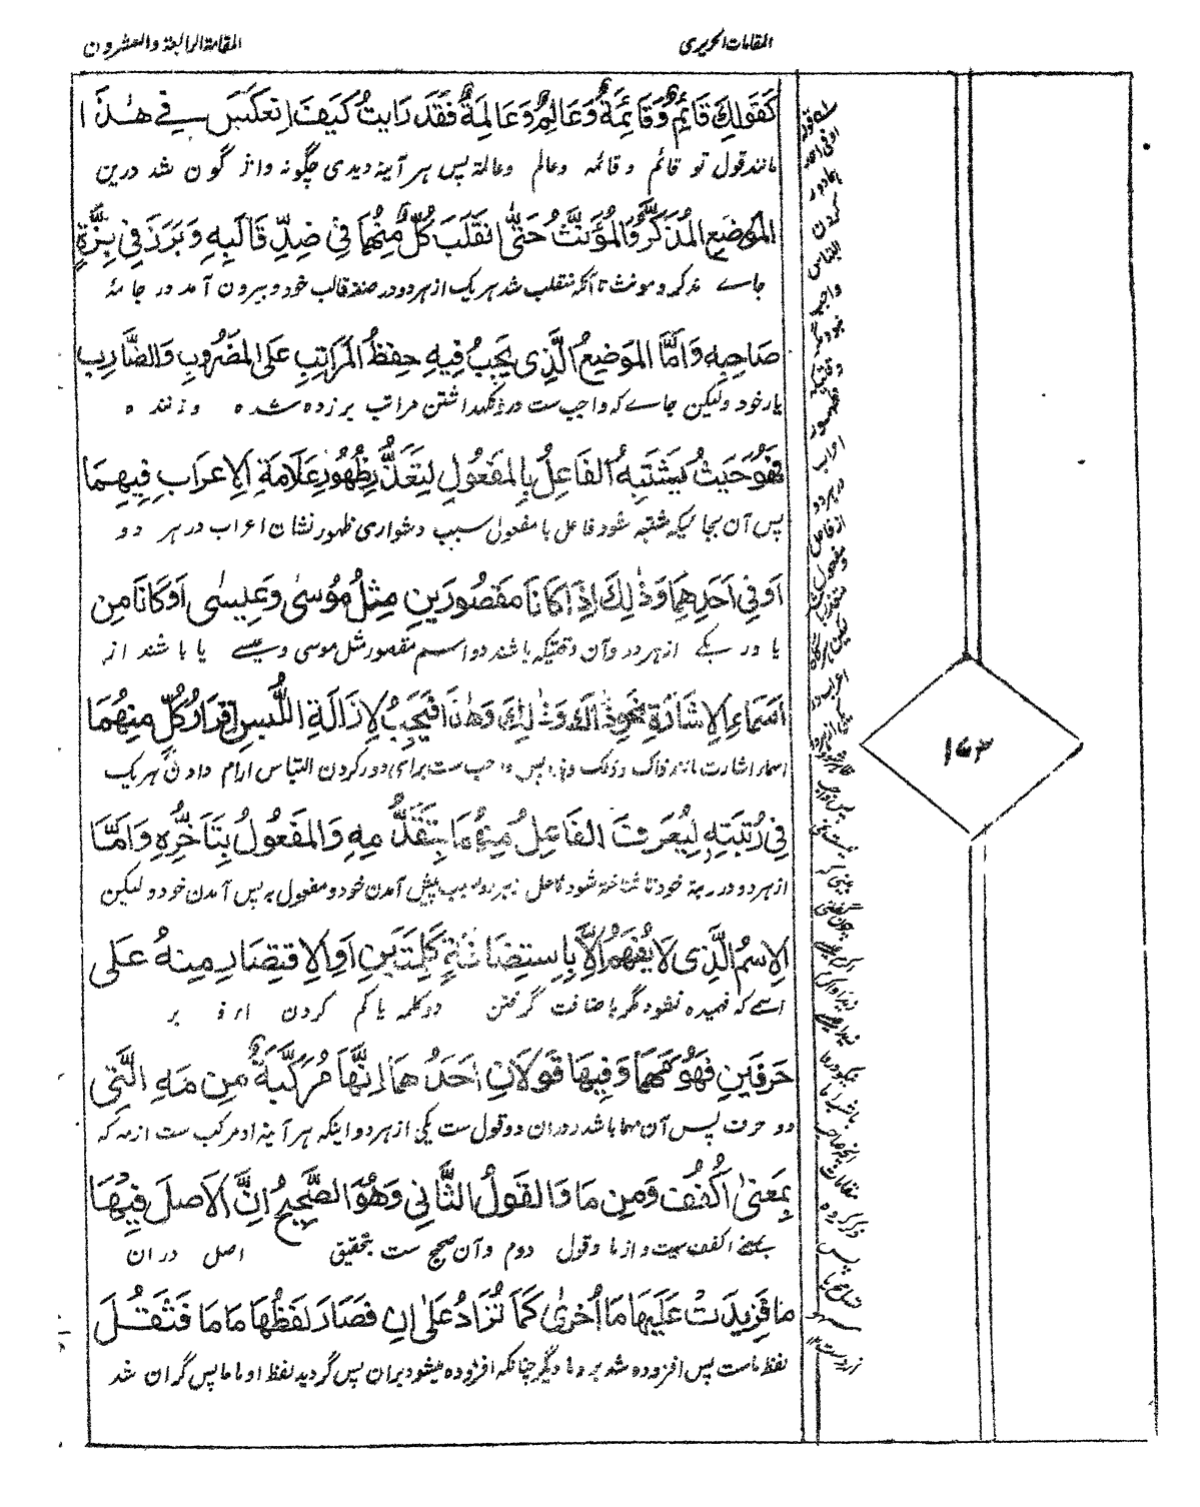 المقامات الحريرى
المقامة الرابعة والعشرون
كَقَوْلِكَ قَائِمٌ وَقَائِمَةٌ وَعَالِمٌ وَعَالِمَةٌ فَقَدْ رَايْتَ كَيْفَ اِنْعَكَسَ فِي هٰذَا
مانند قول تو قائم و قائمه وعالم وعالمة پس هر آينه ديدى چگونه واژگون شد درين
الْمَوْضِعِ الْمُذَكَّرُ وَالْمُؤَنَّثُ حَتّٰى انْقَلَبَ كُلٌّ مِّنْهُمَا فِي ضِدِّ قَالَبِهٖ وَبَرَزَ فِي بِزَّةِ
جاے مذكر و مونث تا آنكه منقلب شد هريك از هردو در ضد قالب خود و بيرون آمد در جامۂ
صَاحِبِهٖ وَاَمَّا الْمَوْضِعُ الَّذِى يَجِبُ فِيهِ حِفْظُ الْمَرَاتِبِ عَلَى الْمَضْرُوبِ وَالضَّارِبِ
يار خود وليكن جاے كه واجب ست درو نگهداشتن مراتب بر زده شده و زننده
فَهُوَ حَيْثُ يَشْتَبِهُ الْفَاعِلُ بِالْمَفْعُولِ لِتَعَذُّرِ ظُهُورِ عَلَامَةِ الْاِعْرَابِ فِيهِمَا
پس آن بجائيكه مشتبه شود فاعل با مفعول بسبب دشوارى ظهور نشان اعراب در هر دو
اَوْ فِي اَحَدِهِمَا وَذٰلِكَ اِذَا كَانَا مَقْصُورَيْنِ مِثْلُ مُوْسٰى وَعِيسٰى اَوْ كَانَا مِنْ
يا در يكے از هردو وآن وقتيكه باشند دو اسم مقصور مثل موسى و عيسے يا باشند از
اَسْمَاءِ الْاِشَارَةِ نَحْوُ ذَاكَ وَذٰلِكَ وَهٰذَا فَيَجِبُ لِاِزَالَةِ اللُّبْسِ اِقْرَارُ كُلٍّ مِنْهُمَا
اسماء اشارت مانند ذاك و ذلك و هذا پس واجب ست براى دور كردن التباس ارام دادن هريك
فِي رُتْبَتِهٖ لِيُعْرَفَ الْفَاعِلُ مِنْهُمَا بِتَقَدُّمِهٖ وَالْمَفْعُولُ بِتَاَخُّرِهٖ وَاَمَّا
از هردو در رجة خود تا شناخته شود فاعل از هردو بسبب پيش آمدن خود و مفعول به پس آمدن خود و ليكن
الْاِسْمُ الَّذِى لَا يُفْهَمُ اِلَّا بِاسْتِضَافَةِ كَلِمَتَيْنِ اَوِ الْاِقْتِصَارِ مِنْهُ عَلٰى
اسمے كه فهميده نشود مگر باضافت گرفتن دو كلمه يا كم كردن ازو بر
حَرْفَيْنِ فَهُوَ مَهْمَا وَفِيهَا قَوْلَانِ اَحَدُهُمَا اِنَّهَا مُرَكَّبَةٌ مِنْ مَهِ الَّتِي
دو حرف پس آن مهما باشد و دران دو قول ست يكى از هردو اينكه هر آينه او مركب ست از مه كه
بِمَعْنٰى اُكْفُفْ وَمِنْ مَا وَالْقَوْلُ الثَّانِي وَهُوَ الصَّحِيحُ اِنَّ الْاَصْلَ فِيهَا
بمعنے اكفف ست و از ما وقول دوم و آن صحيح ست بتحقيق اصل دران
مَا فَزِيدَتْ عَلَيْهَا مَا اُخْرٰى كَمَا تُزَادُ عَلٰى اِنْ فَصَارَ لَفْظُهَا مَا مَا فَثَقُلَ
لفظ ماست پس افزوده شد بر و ما ديگر چنانكه افزوده ميشود بر ان پس گرديد لفظ او ما ما پس گران شد
۱۷۲